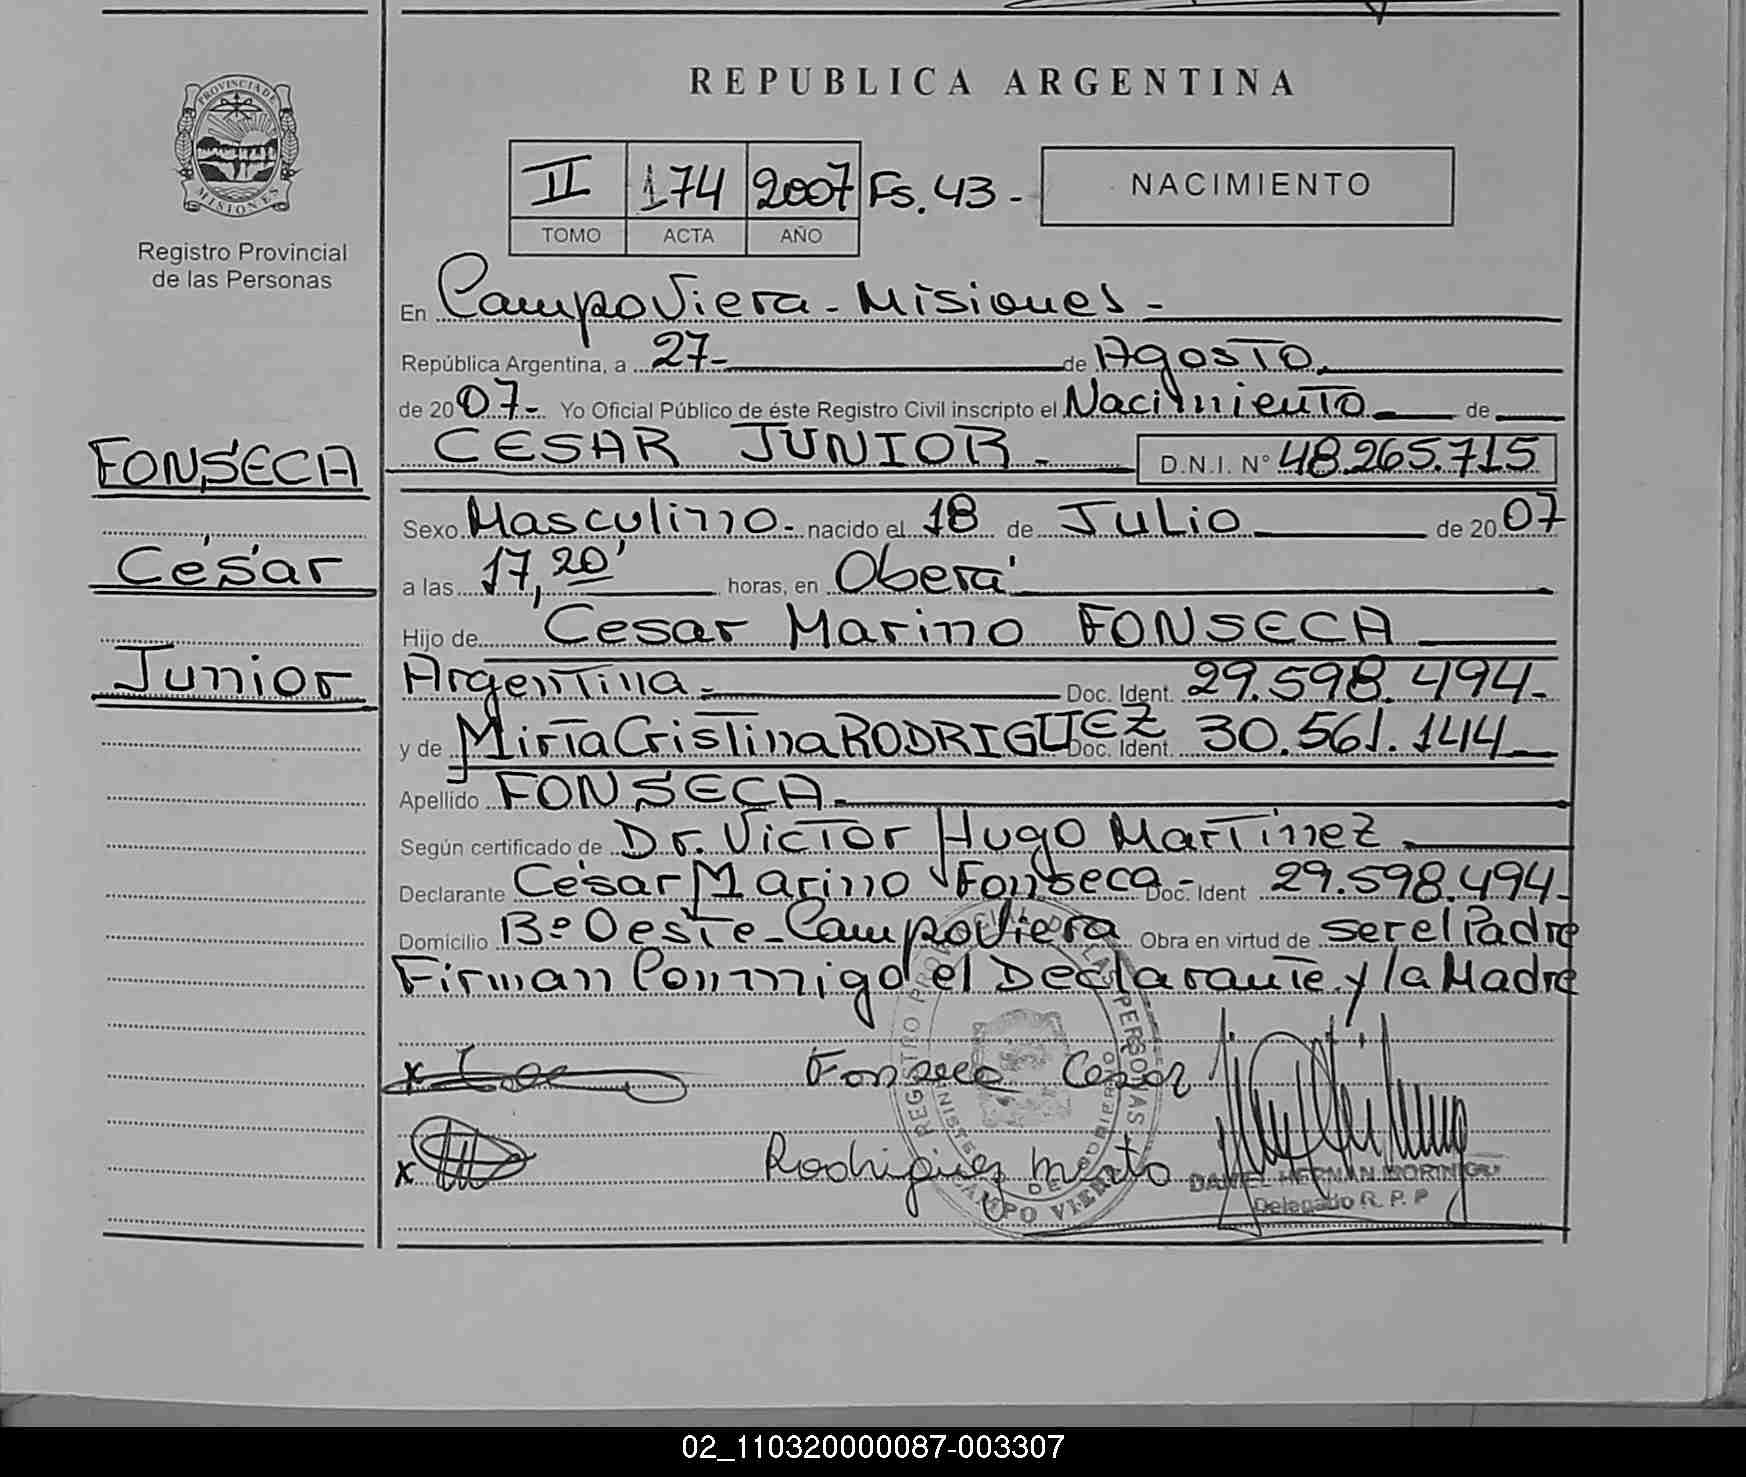 REPUBLICA ARGENTINA
PROVINCIA DE MISIONES
Registro Provincial
de las Personas
II 174 2007 Fs. 43 -
TOMO ACTA AÑO
NACIMIENTO
En Campo Viera - Misiones -
República Argentina, a 27- de Agosto
de 2007.- Yo Oficial Público de éste Registro Civil inscripto el Nacimiento de
CESAR JUNIOR - D.N.I. N° 48.265.715
FONSECA
César
Junior
Sexo Masculino - nacido el 18 de Julio de 2007
a las 17,20' horas, en Oberá
Hijo de Cesar Marino FONSECA
Argentina - Doc. Ident. 29.598.494-
y de Mirta Cristina RODRIGUEZ Doc. Ident. 30.561.144
Apellido FONSECA -
Según certificado de Dr. Victor Hugo Martinez
Declarante César Marino Fonseca - Doc. Ident 29.598.494-
Domicilio Bº Oeste - Campo Viera Obra en virtud de ser el Padre
Firman Conmigo el Declarante y la Madre
x Fonseca Cesar
x Rodriguez Mirta
REGISTRO PROVINCIAL DE LAS PERSONAS
MINISTERIO DE GOBIERNO
CAMPO VIERA
DANIEL HERNAN MORINIGO
Delegado R. P. P
02_110320000087-003307